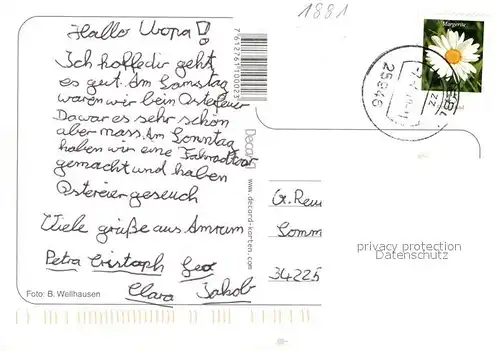 1881
Hallo Uropa!
Ich hoffe dir geht
es gut. Am Samstag
waren wir beim Osterfeuer
Da war es sehr schön
aber nass. Am Sonntag
haben wir eine Fahrradtour
gemacht und haben
Ostereier gesucht
Viele grüße aus Amrum
Petra Cristoph
Clara Jakob
Foto: B. Wellhausen
7612761100023
Decord
www.decord-karten.com
Margerite
25946
22
G. Reu
Somm
34225
privacy protection
Datenschutz